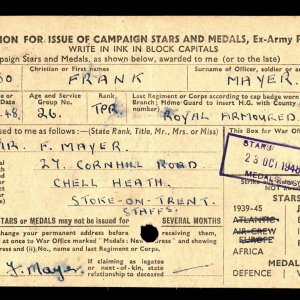 ION FOR ISSUE OF CAMPAIGN STARS AND MEDALS, Ex-Army P
WRITE IN INK IN BLOCK CAPITALS
paign Stars and Medals, as shown below, awarded to me (or to the late)
Christian or First names
Surname of Officer, soldier or
FRANK
MAYER.
Age and Service Group No.
Rank
Last Regiment or Corps according to cap badge
Branch: Home Guard to insert H.G. with County
.48.
26.
TPR.
ROYAL ARMOURED.
ued to me as follows:— (State Rank, Title, Mr., Mrs. or Miss)
This Box for War Offi
MR. F. MAYER.
27. CORNHILL ROAD
CHELL HEATH.
STOKE-ON-TRENT.
STAFFS.
STARS
23 OCT 194
MEDALS
STARS or MEDALS may not be issued for SEVERAL MONTHS
change your permanent address before you receive them
at once to War Office marked "Medals: New
ess" and showing
(ii) No., name and last Regiment or Corps.
F. Mayer.
If claiming as legatee
or next-of-kin, state
relationship to deceased
STARS
1939-45
ATLANTIC
AIR CREW
EUROPE
AFRICA
MEDALS
DEFENCE